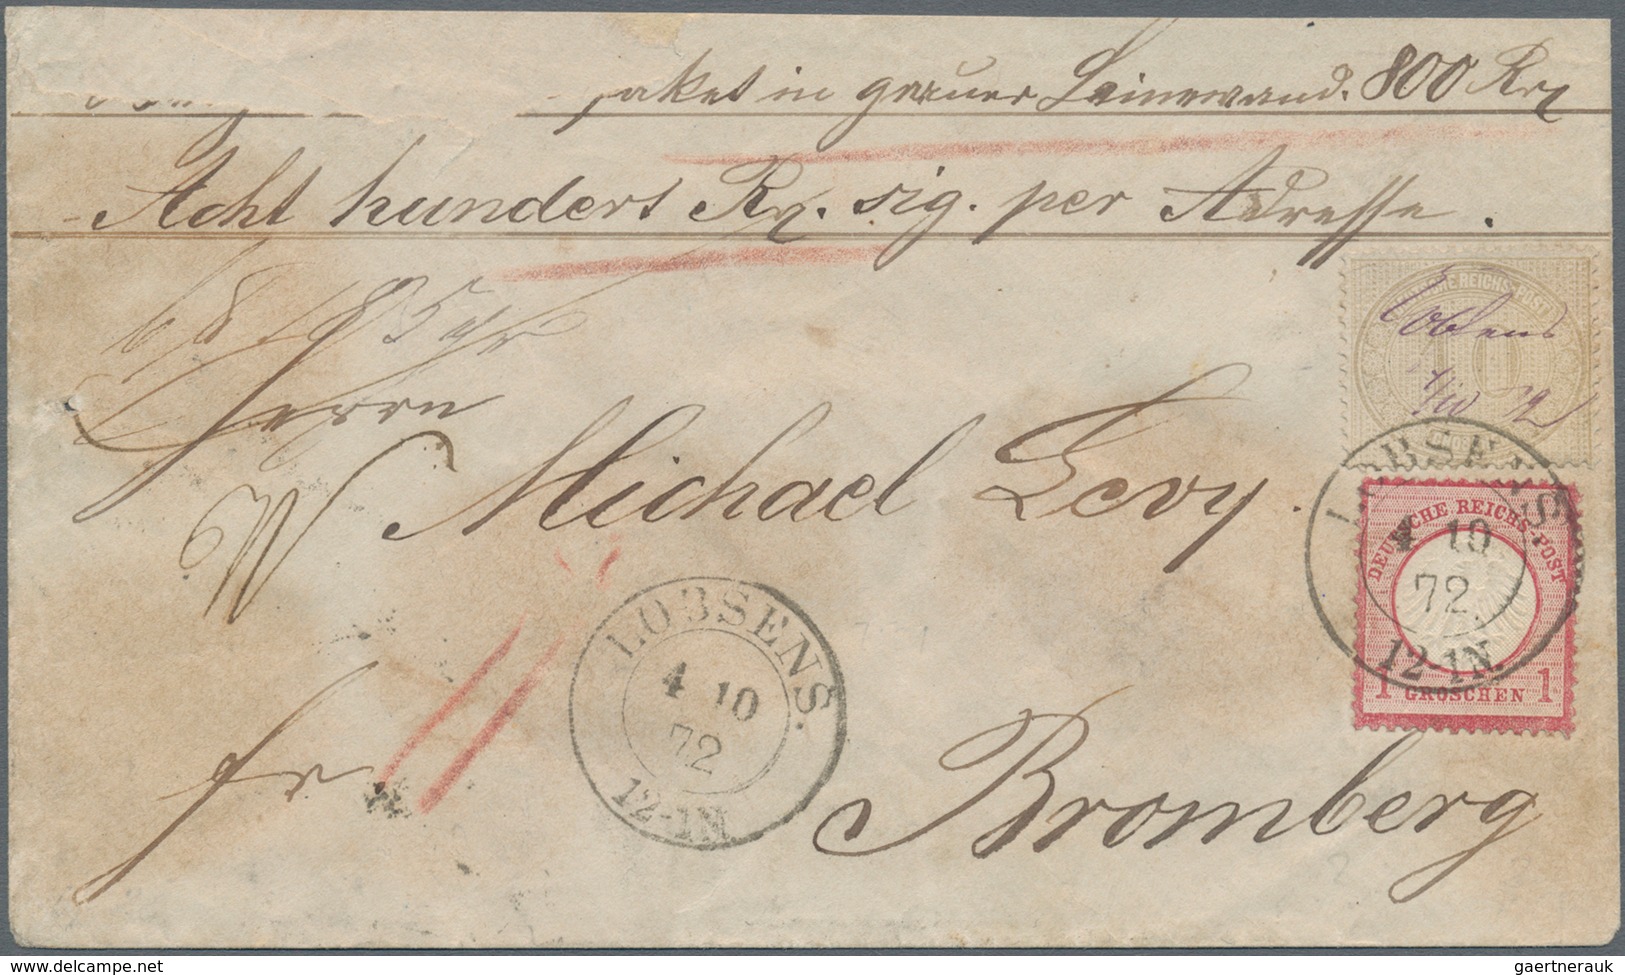 paket in grauer Leinewand. 800 Rq
Acht hundert Rq. sig. per Adresse.
Herrn
Michael Levy.
Bromberg
fr
DEUTSCHE REICHS-POST
10
Lobsens
4/10 72
LOBSENS
4 10
72
12-1N.
DEUTSCHE REICHS-POST
1 GROSCHEN 1
LOBSENS.
4 10
72
12-1N
delcampe.net
gaertnerauk